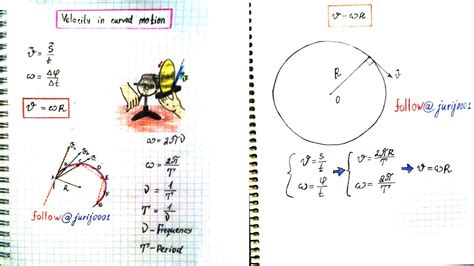 Velocity in curved motion
ϑ = S/t
ω = Δφ/Δt
ϑ = ωR
ϑ
ω = 2πν
ω = 2π/T
ν = 1/T
T = 1/ν
ν - Frequency
T - Period
R
follow@jurij0001
ϑ - ωR
R
O
ϑ
follow@jurij0001
ϑ = S/t
ω = φ/t
ϑ = 2πR/T
ω = 2π/T
ϑ = ωR